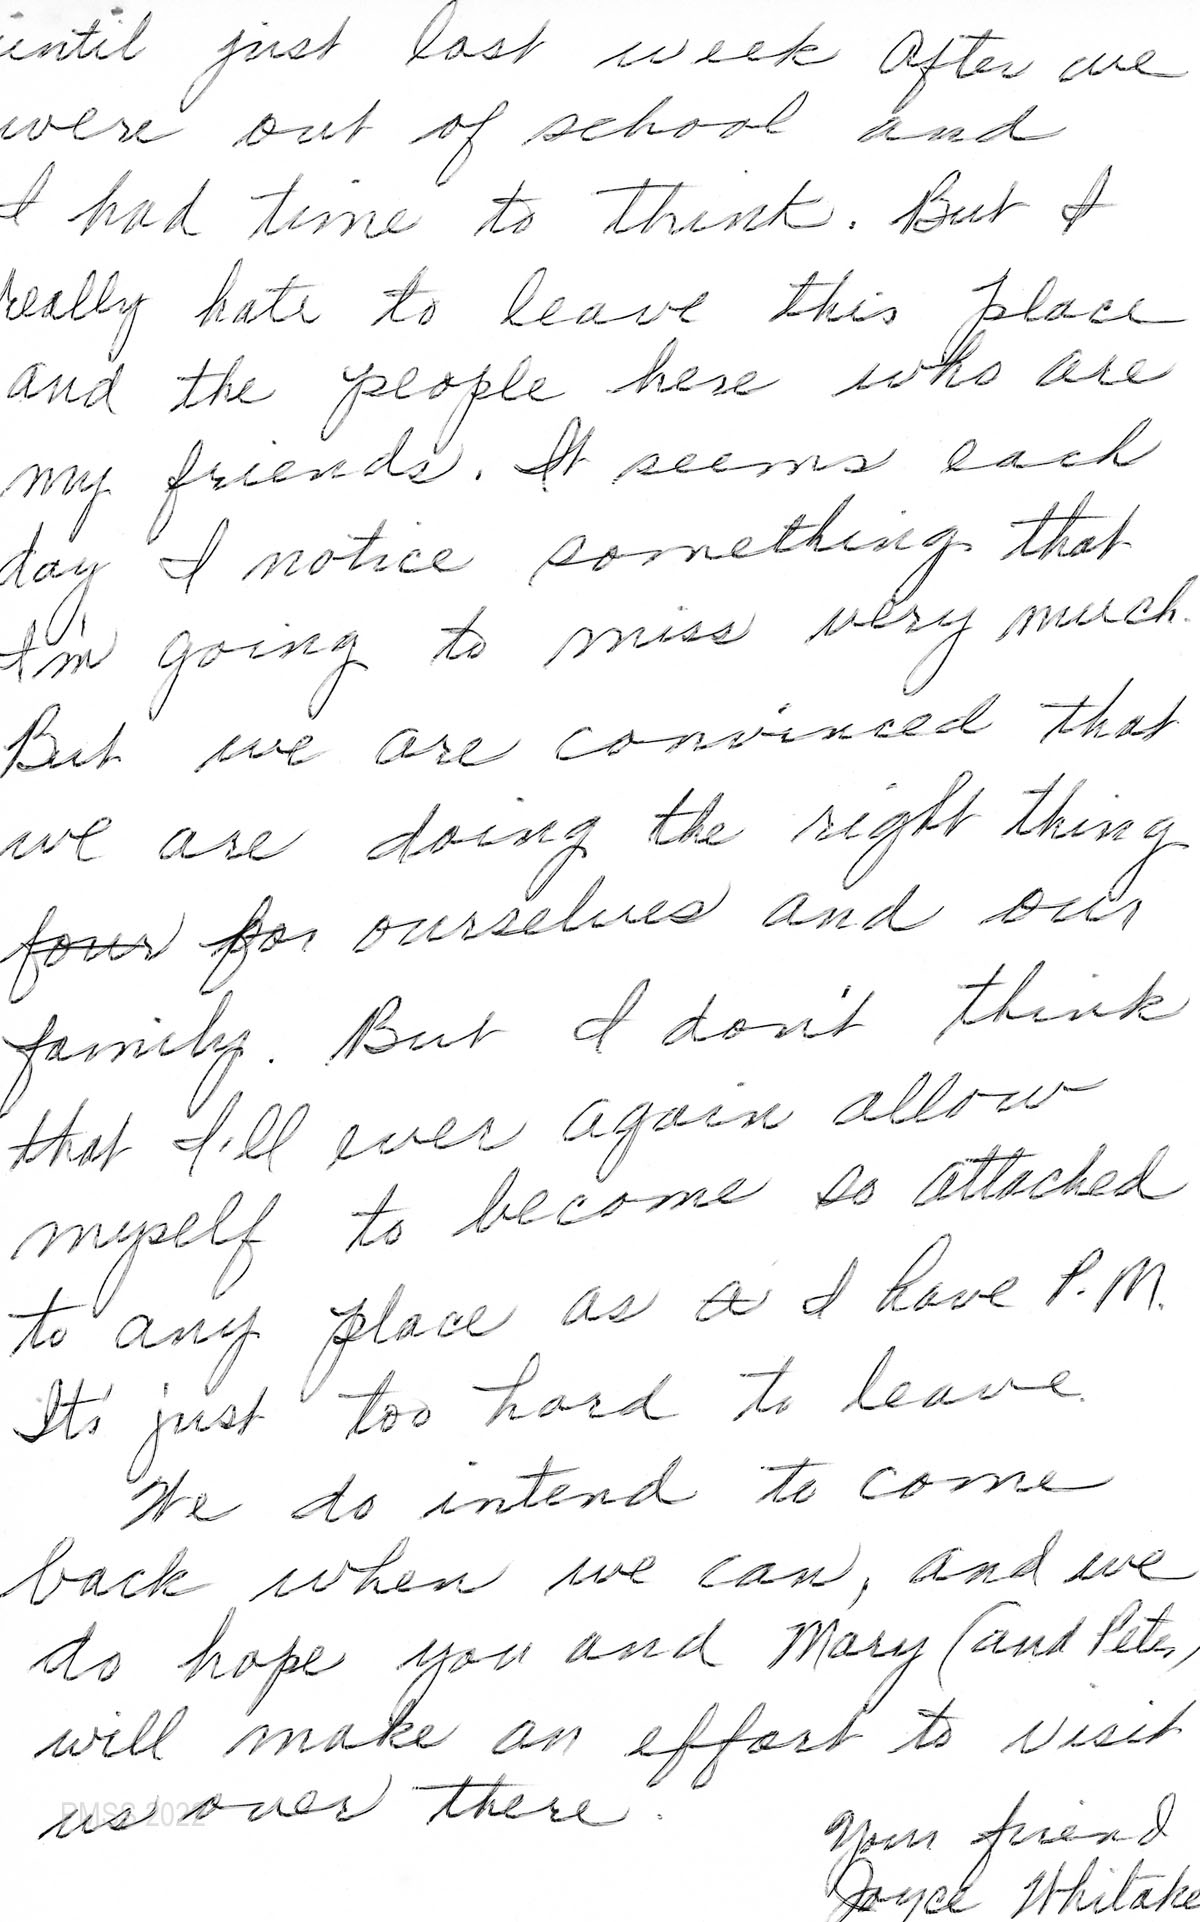 until just last week after we
were out of school and
I had time to think. But I
really hate to leave this place
and the people here who are
my friends. It seems each
day I notice something that
I'm going to miss very much.
But we are convinced that
we are doing the right thing
four for ourselves and our
family. But I don't think
that I'll ever again allow
myself to become so attached
to any place as a I have P.M.
It's just too hard to leave.
We do intend to come
back when we can, and we
do hope you and Mary (and Pete,
will make an effort to visit
us over there.
PMSS 2022
Your friend
Joyce Whitake